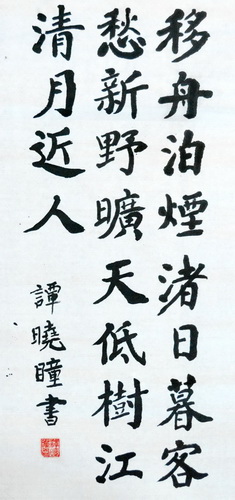 移舟泊煙渚日暮客
愁新野曠天低樹江
清月近人
譚曉曈書